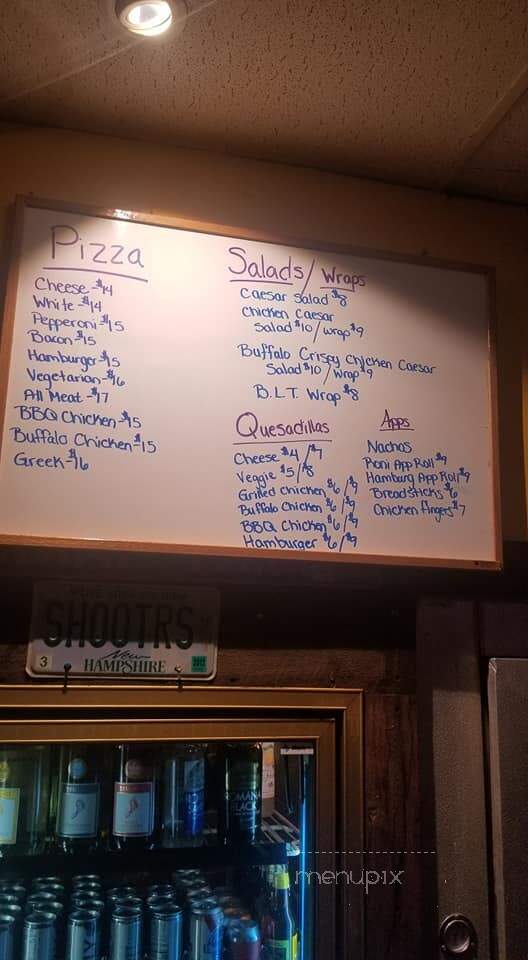 Pizza
Cheese-$14
White-$14
Pepperoni-$15
Bacon-$15
Hamburger-$15
Vegetarian-$16
All Meat-$17
BBQ Chicken-$15
Buffalo Chicken-$15
Greek-$16
Salads/Wraps
Caesar Salad $8
Chicken Caesar
Salad $10/wrap $9
Buffalo Crispy Chicken Caesar
Salad $10/wrap $9
B.L.T. Wrap $8
Quesadillas
Cheese $4/$7
Veggie $5/$8
Grilled Chicken $6/$9
Buffalo Chicken $6/$9
BBQ Chicken $6/$9
Hamburger $6/$9
Apps
Nachos
Roni App Roll $9
Hamburg App Roll $9
Breadsticks $6
Chicken fingers $7
SHOOTRS
3
New
HAMPSHIRE
menupix